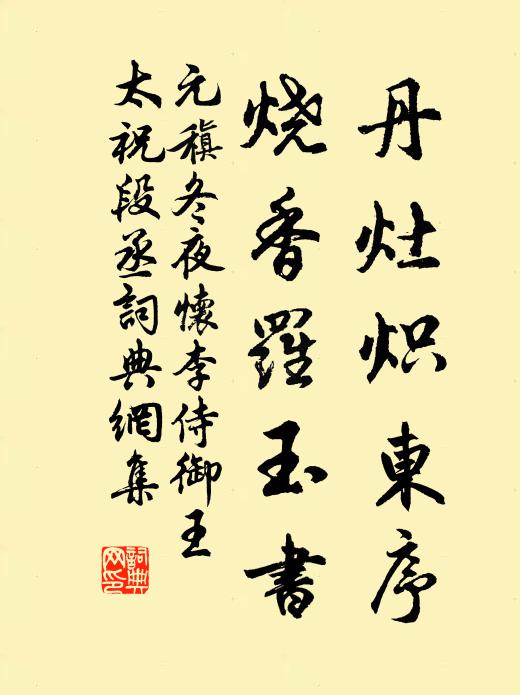 丹灶炽東序
烧香羅玉書
元稹冬夜懷李侍御王
太祝段丞詞典網集
詞典网印